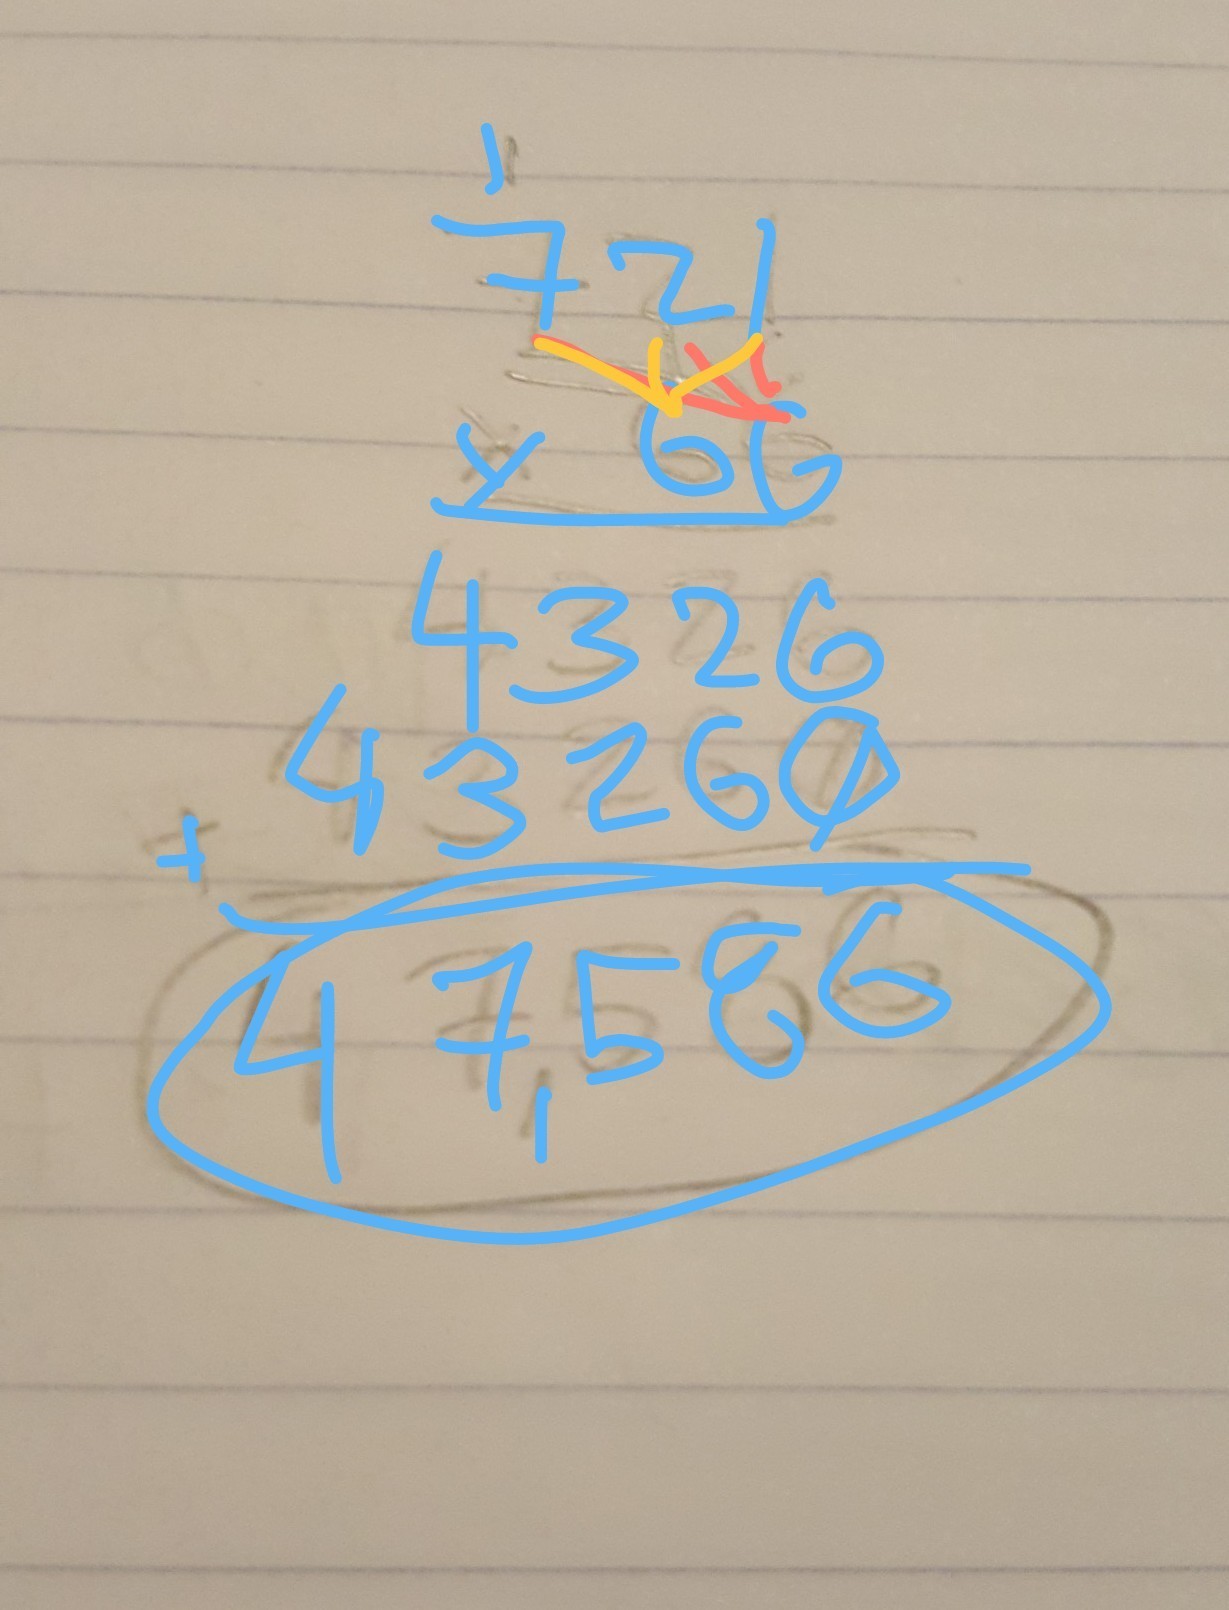 1
721
x 66
4326
+ 43260
47,586